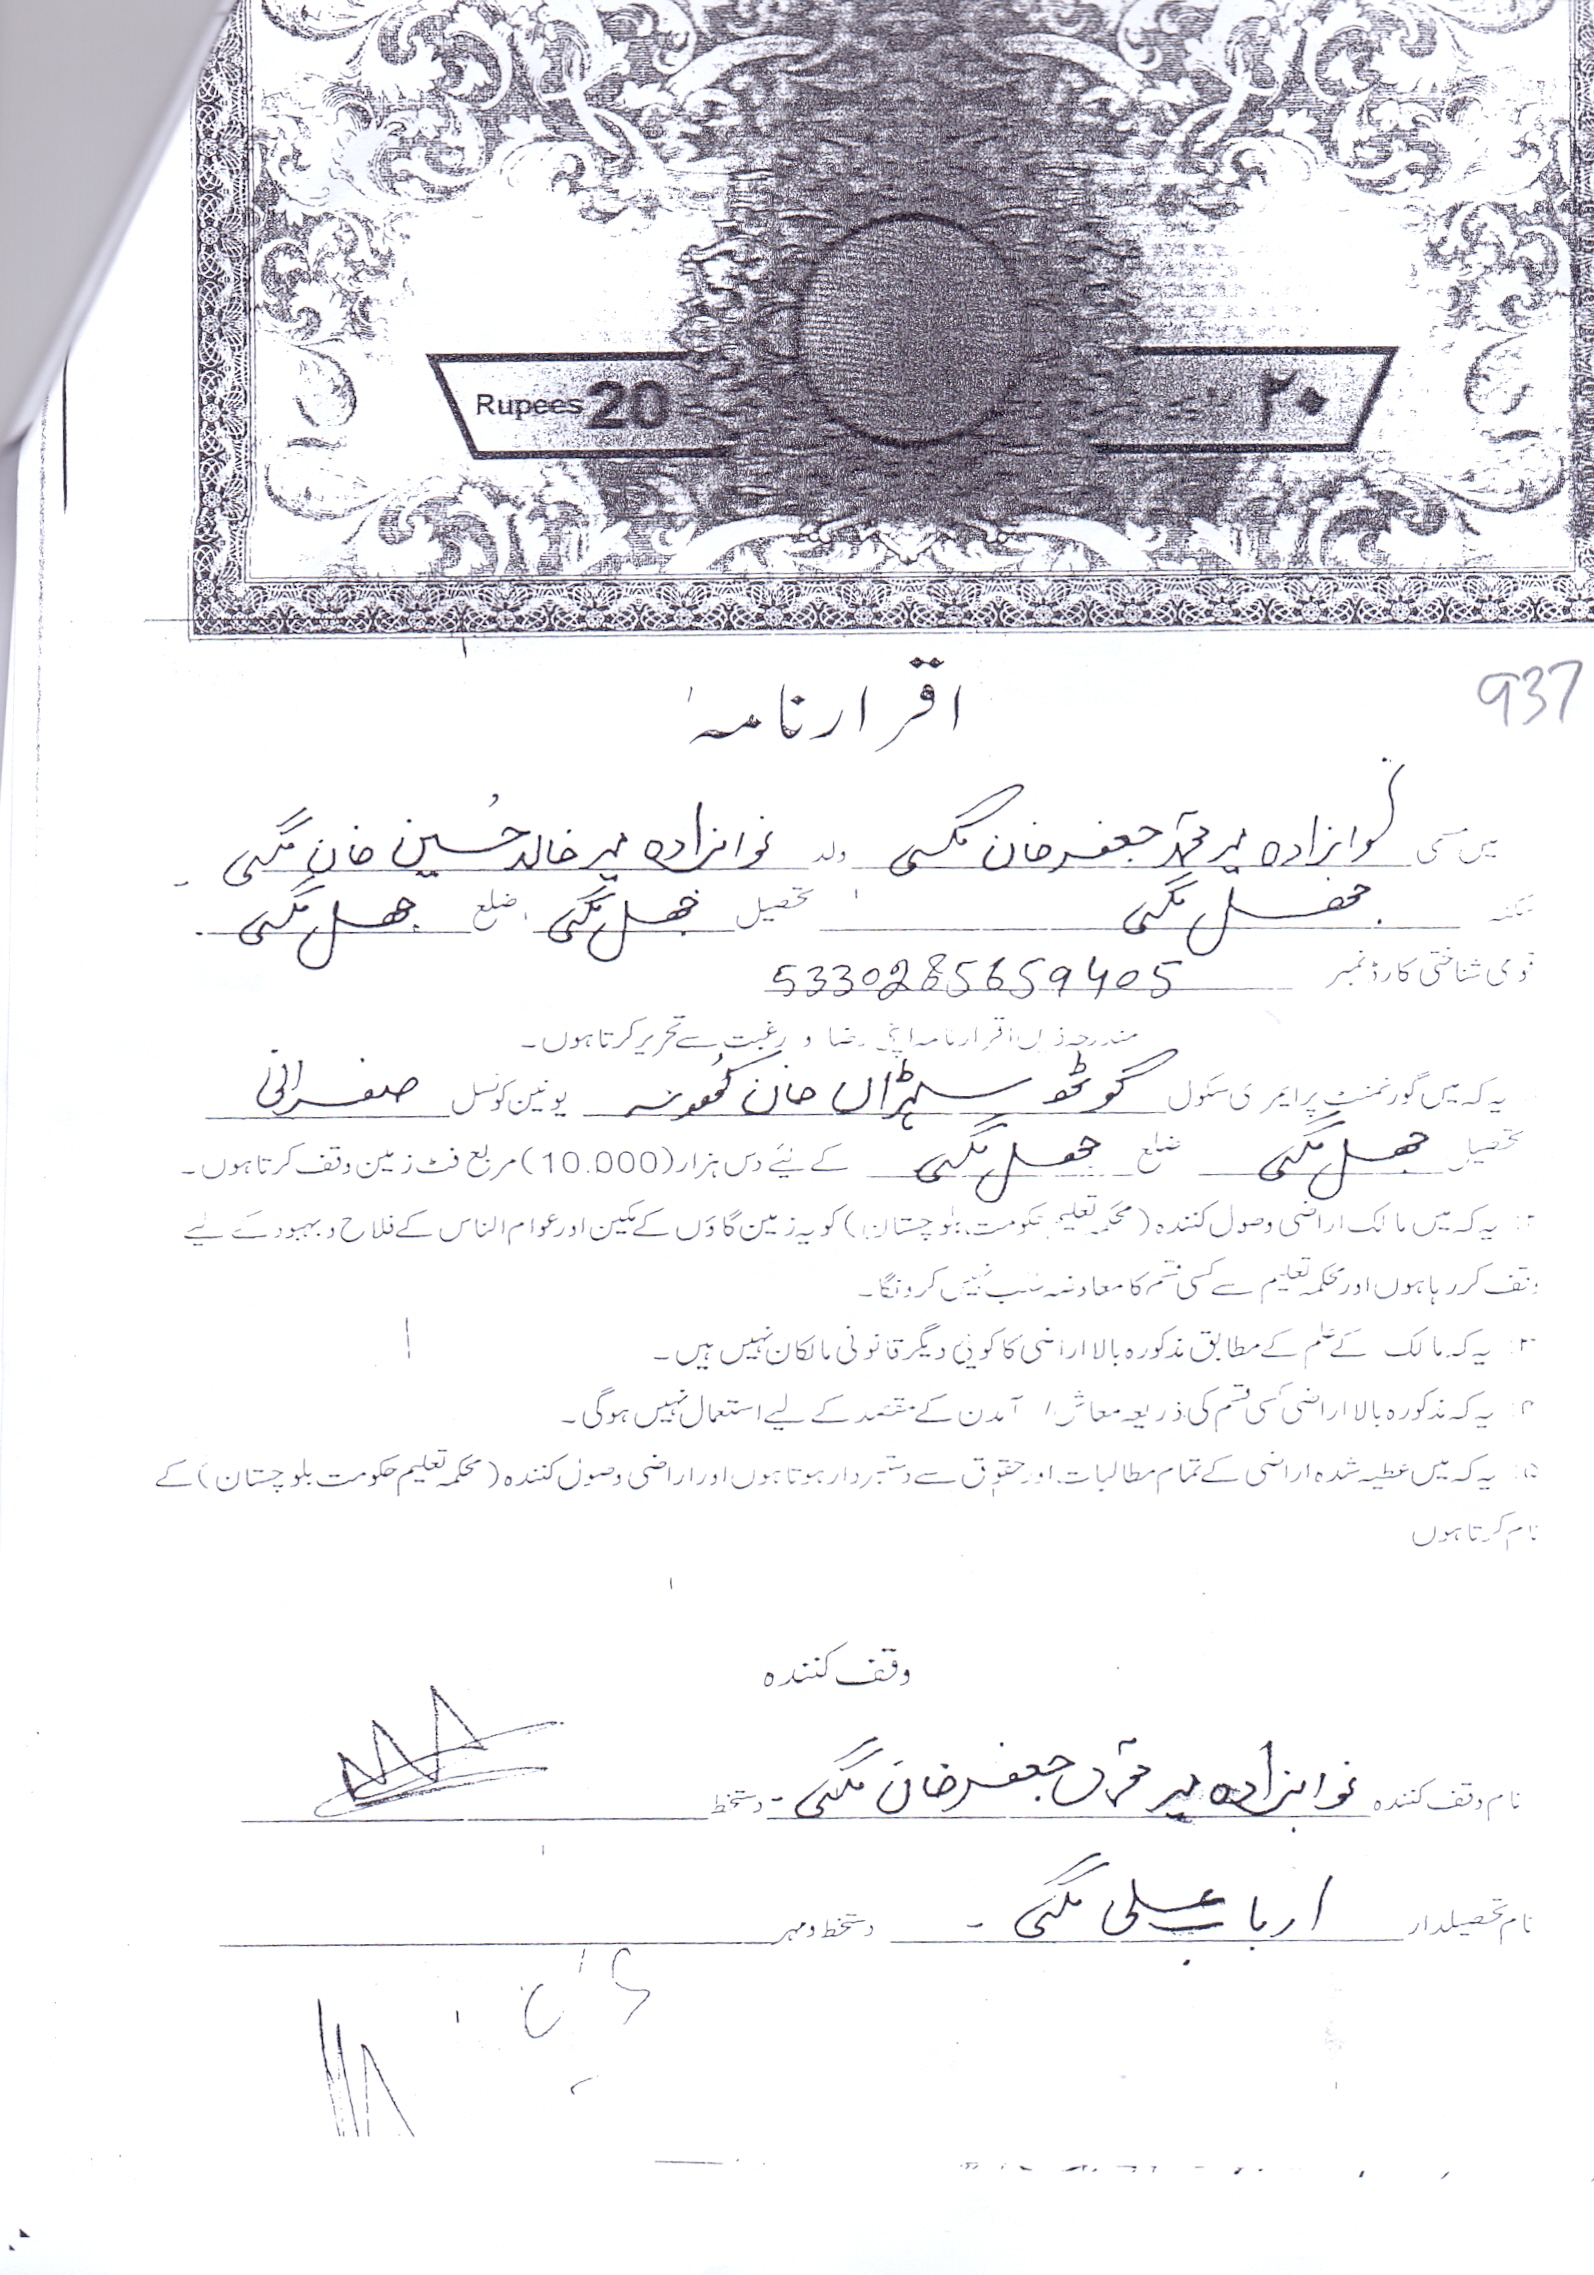 Rupees 20 ۲۰
اقرار نامہ
937
میں مسمی نوابزادہ میر محمد جعفر خان مگسی ولد نوابزادہ میر خالد حُسین خان مگسی ۔
سکنہ جھل مگسی تحصیل جھل مگسی ضلع جھل مگسی ۔
قومی شناختی کارڈ نمبر 5330285659405
مندرجہ ذیل اقرار نامہ اپنی رضا و رغبت سے تحریر کرتا ہوں۔
یہ کہ میں گورنمنٹ پرائمری سکول گوٹھ سہڑاں خان یونین کونسل صفرانی
تحصیل جھل مگسی ضلع جھل مگسی کے لئے دس ہزار (10.000) مربع فٹ زمین وقف کرتا ہوں۔
۲: یہ کہ میں مالک اراضی وصول کنندہ (محکمہ تعلیم حکومت بلوچستان) کو یہ زمین گاؤں کے مکین اور عوام الناس کے فلاح و بہبود کے لیے
وقف کر رہا ہوں اور محکمہ تعلیم سے کسی قسم کا معاوضہ طلب نہیں کرونگا۔
۳: یہ کہ مالک کے علم کے مطابق مذکورہ بالا اراضی کا کوئی دیگر قانونی مالکان نہیں ہیں۔
۴: یہ کہ مذکورہ بالا اراضی کسی قسم کی ذریعہ معاش / آمدن کے مقصد کے لیے استعمال نہیں ہوگی۔
۵: یہ کہ میں عطیہ شدہ اراضی کے تمام مطالبات اور حقوق سے دستبردار ہوتا ہوں اور اراضی وصول کنندہ (محکمہ تعلیم حکومت بلوچستان) کے
نام کرتا ہوں
وقف کنندہ
نام وقف کنندہ نوابزادہ میر محمد جعفر خان مگسی ۔ دستخط
نام تحصیلدار ارباب علی مگسی ۔ دستخط و مہر